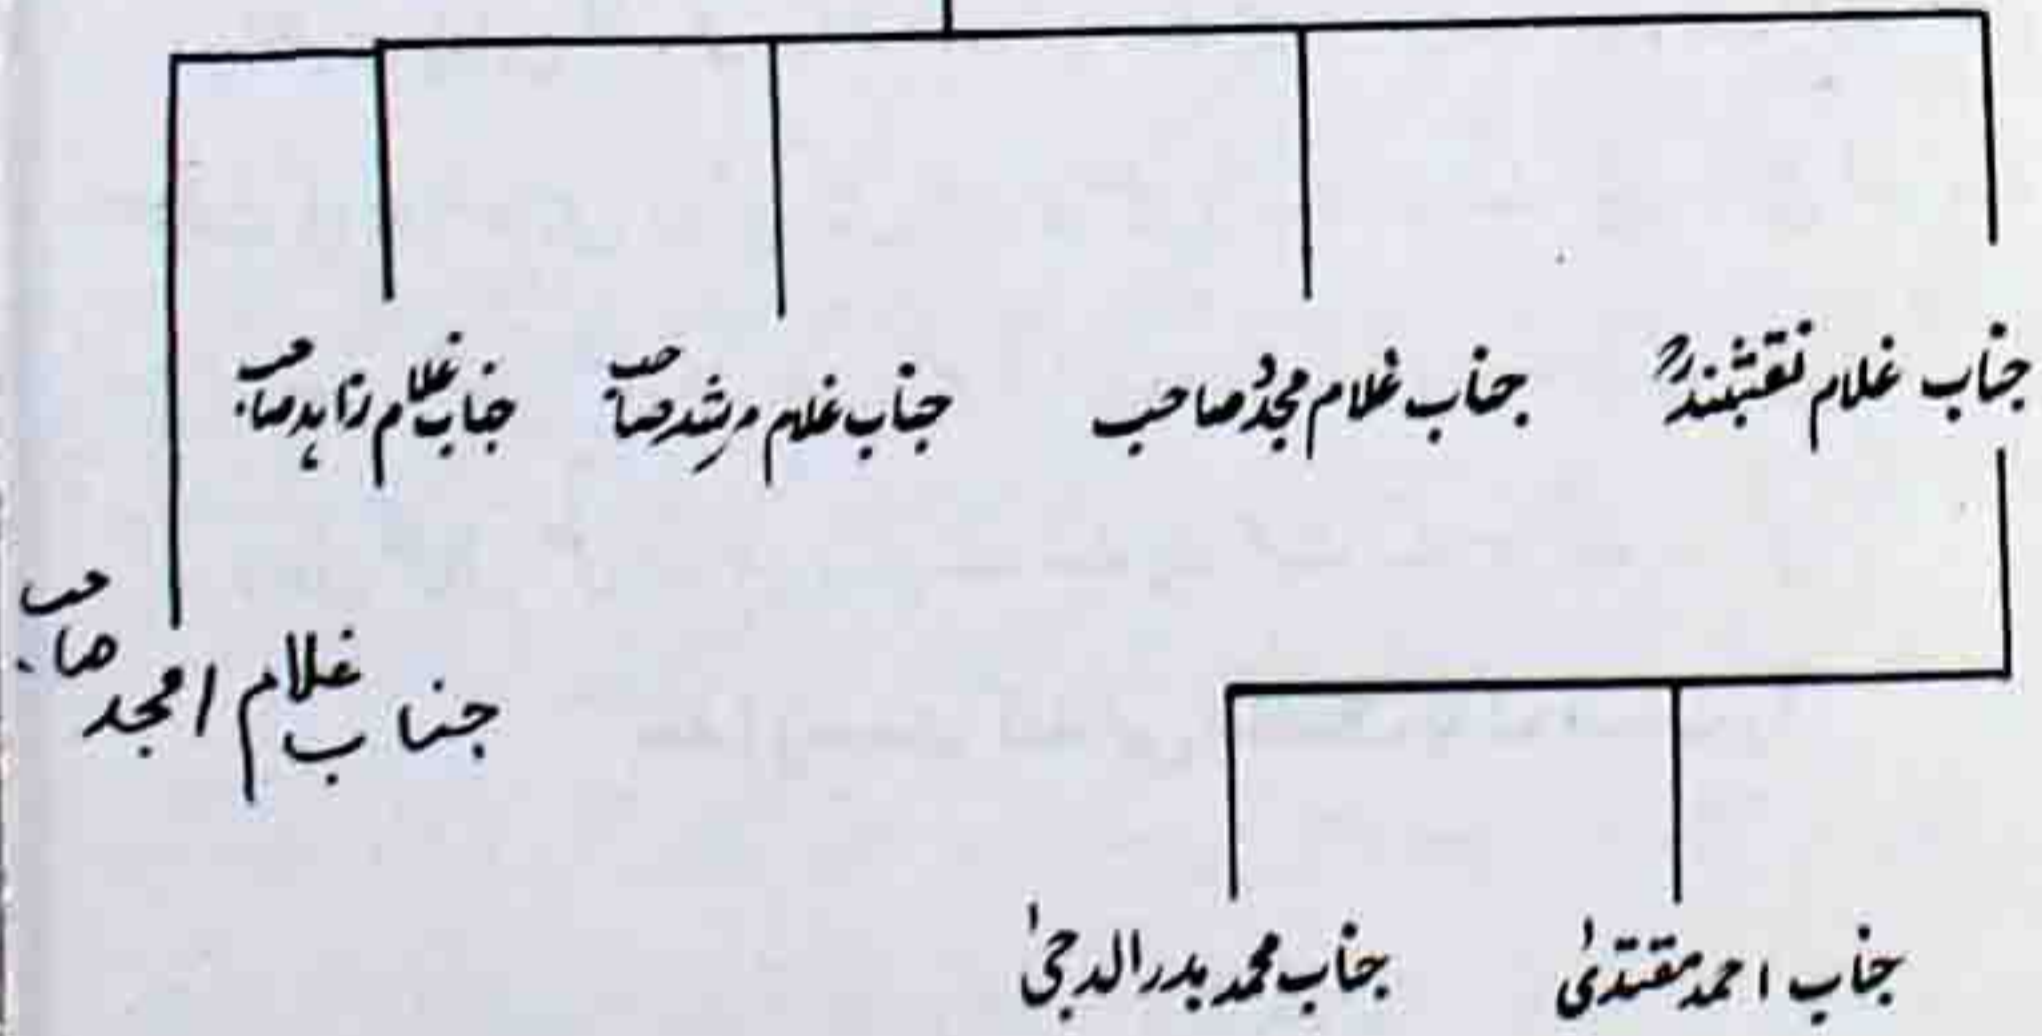 جناب غلام نقشبندؒ
جناب غلام مجدد صاحب
جناب غلام مرشد صاحب
جناب غلام زاہد صاحب
جناب غلام امجد صاحب
جناب احمد مقتدیٰ
جناب محمد بدر الدجیٰ